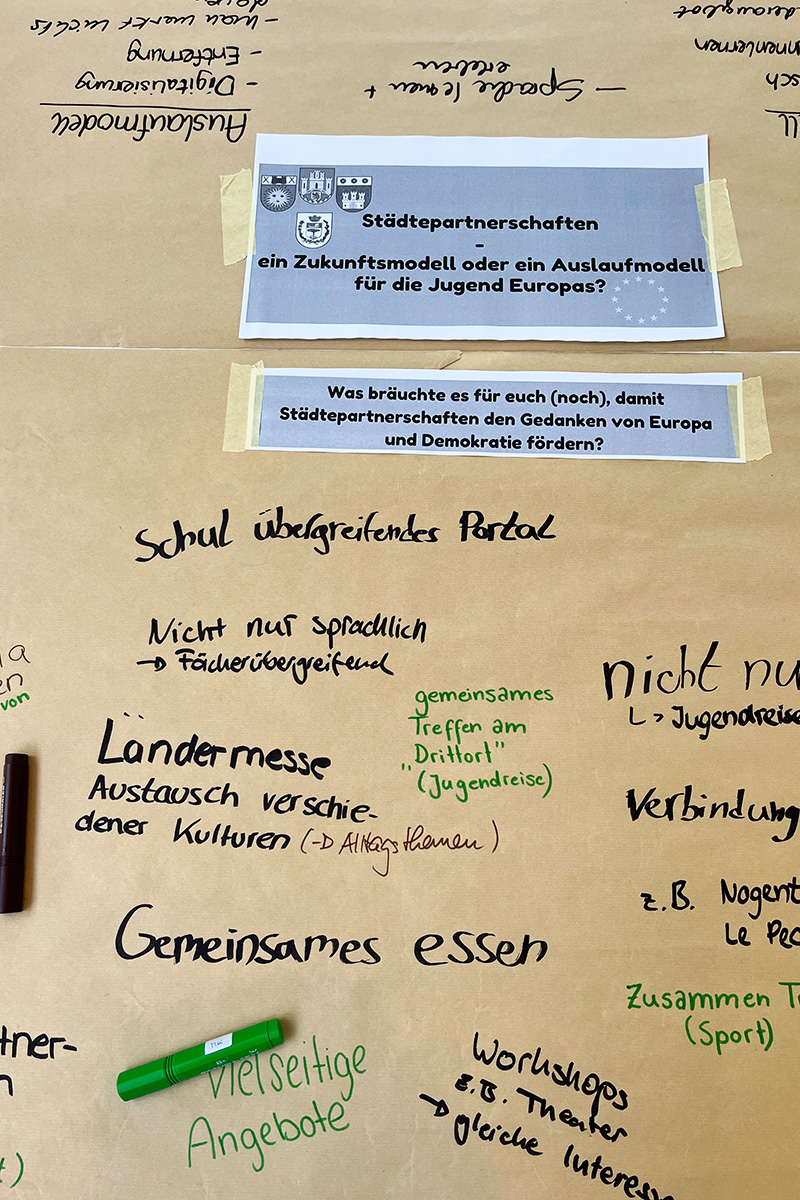 Auslaufmodell
- Digitalisierung
- Entfernung
- man merkt nichts
– Sprache lernen +
erleben
Städtepartnerschaften
-
ein Zukunftsmodell oder ein Auslaufmodell
für die Jugend Europas?
Was bräuchte es für euch (noch), damit
Städtepartnerschaften den Gedanken von Europa
und Demokratie fördern?
Schul übergreifendes Portal
Nicht nur sprachlich
→ Fächerübergreifend
von
gemeinsames
Treffen am
"Drittort"
(Jugendreise)
nicht nu
L> Jugendreise
Ländermesse
Austausch verschie-
dener Kulturen (→ Alltagsthemen)
Verbindung
z.B. Nogent
Le Pec
Gemeinsames essen
Zusammen T
(Sport)
tner-
vielseitige
Angebote
Workshops
z.B. Theater
→ gleiche Interess